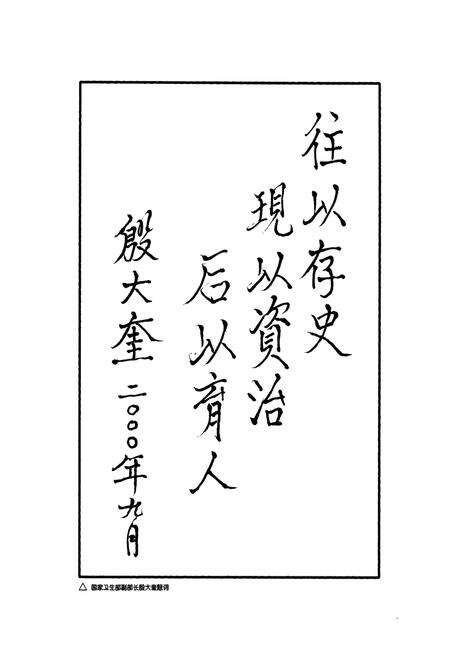 往以存史
現以資治
后以育人
殷大奎 二〇〇〇年九月
△ 国家卫生部副部长殷大奎题词